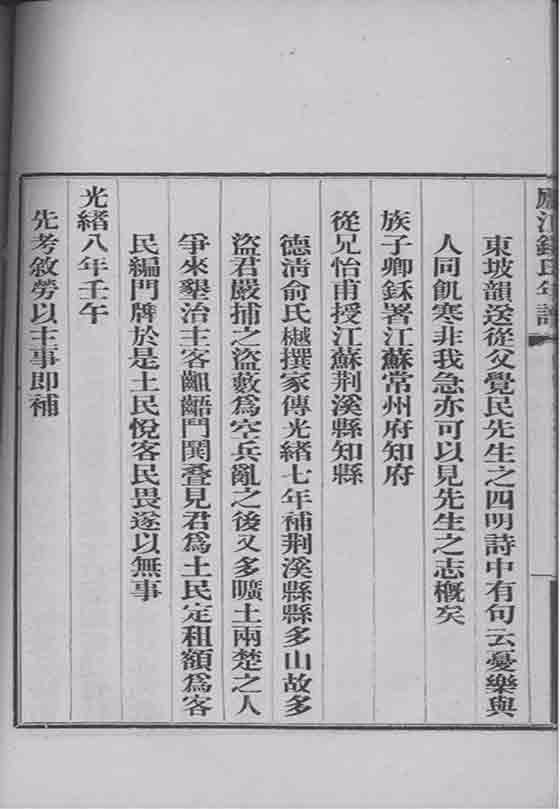 東坡韻送從父覺民先生之四明詩中有句云憂樂與
人同飢寒非我急亦可以見先生之志概矣
族子卿鉌署江蘇常州府知府
從兄怡甫授江蘇荆溪縣知縣
德清俞氏樾撰家傳光緒七年補荆溪縣縣多山故多
盜君嚴捕之盜藪爲空兵亂之後又多曠土兩楚之人
爭來墾治主客齟齬鬥鬨疊見君爲土民定租額爲客
民編門牌於是土民悅客民畏遂以無事
光緒八年壬午
先考敘勞以主事即補